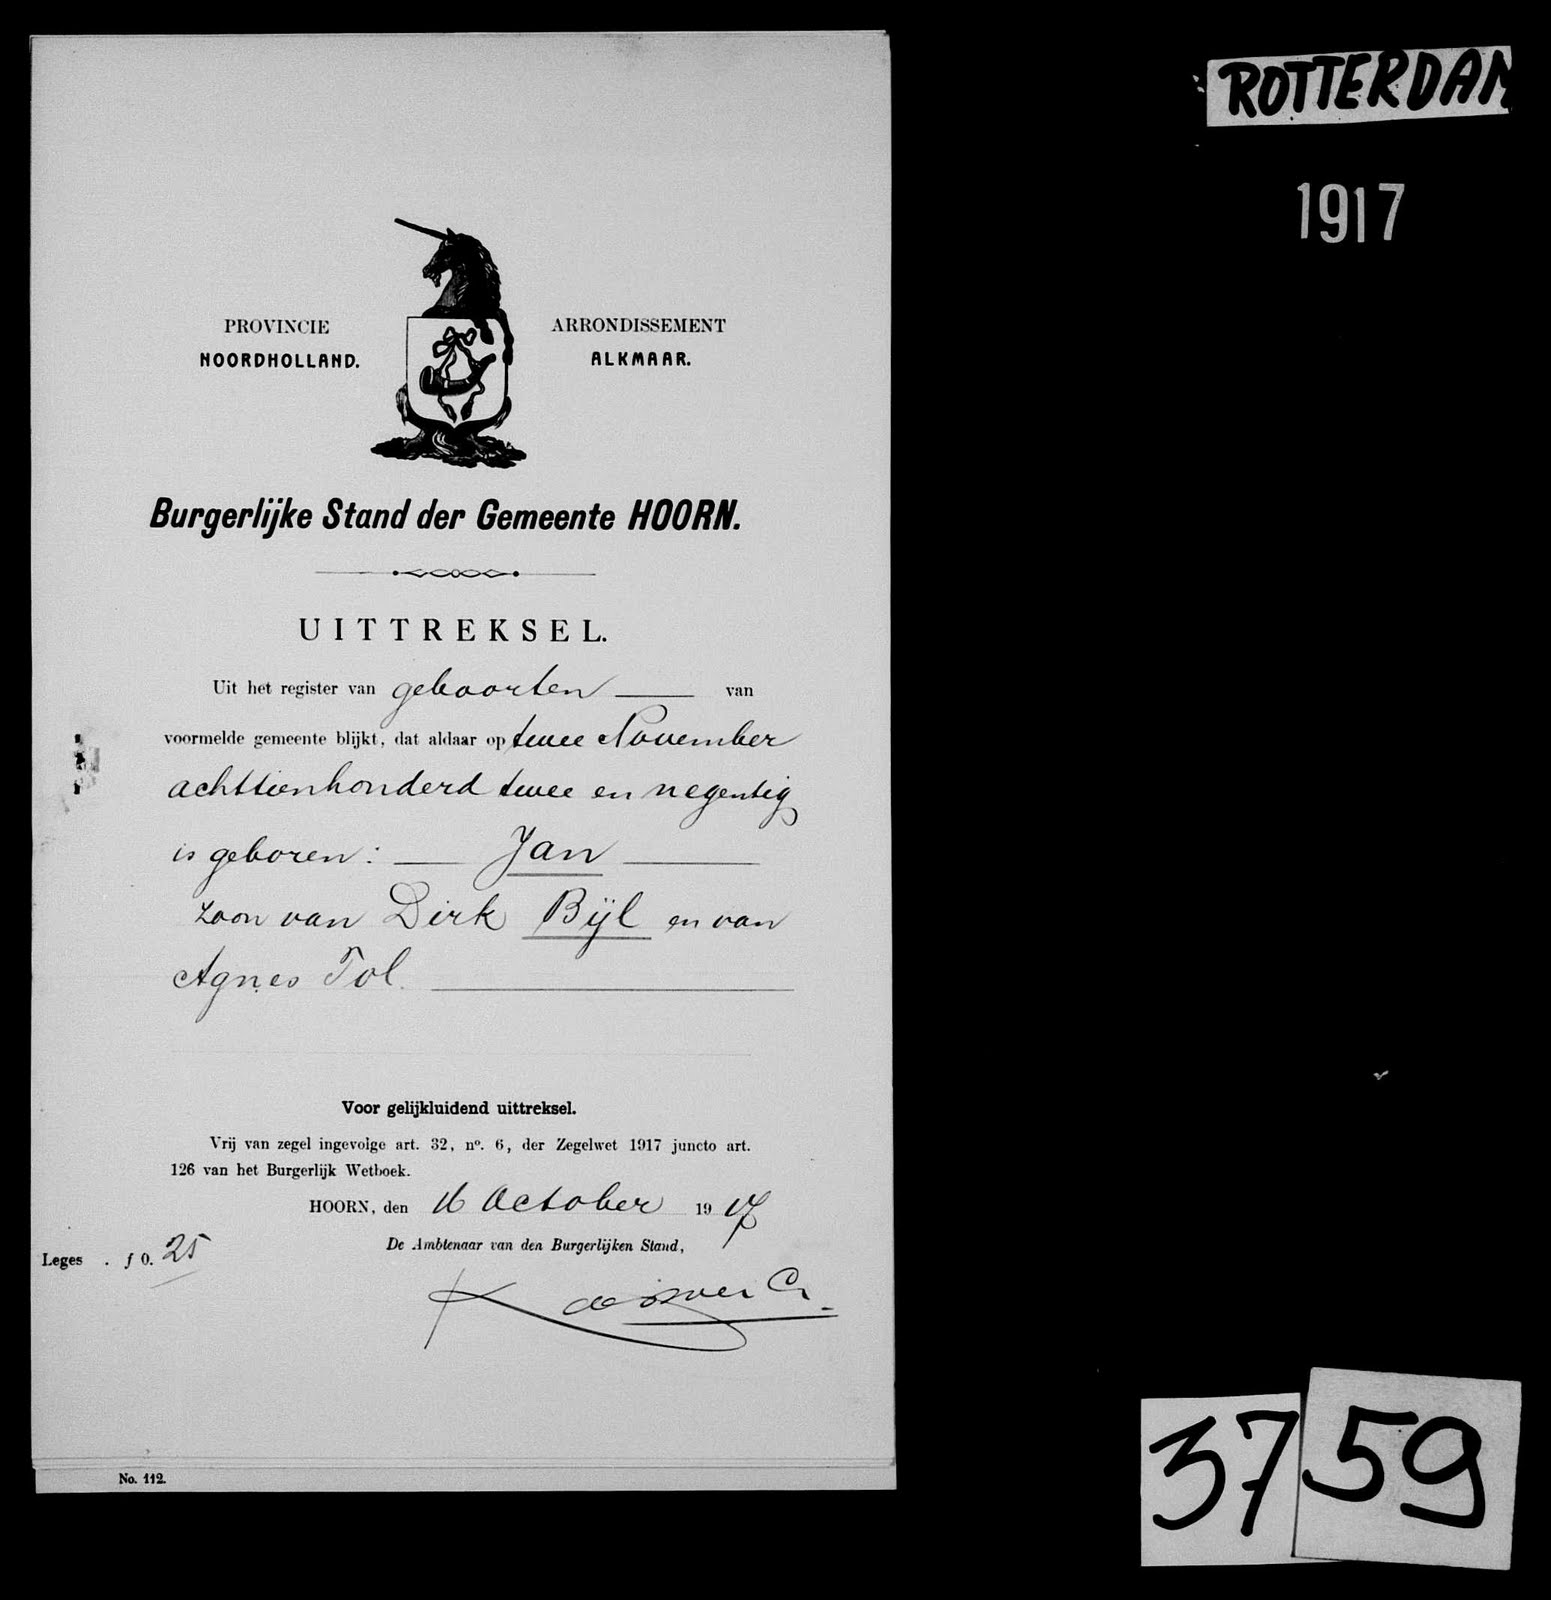 ROTTERDAM
1917
PROVINCIE
NOORDHOLLAND.
ARRONDISSEMENT
ALKMAAR.
Burgerlijke Stand der Gemeente HOORN.
UITTREKSEL.
Uit het register van geboorten van
voormelde gemeente blijkt, dat aldaar op twee November
achttienhonderd twee en negentig
is geboren: Jan
zoon van Dirk Bijl en van
Agnes Tol.
Voor gelijkluidend uittreksel.
Vrij van zegel ingevolge art. 32, nº. 6, der Zegelwet 1917 juncto art.
126 van het Burgerlijk Wetboek.
HOORN, den 16 October 1917
De Ambtenaar van den Burgerlijken Stand,
Leges . ƒ 0.25
No. 112.
37 59